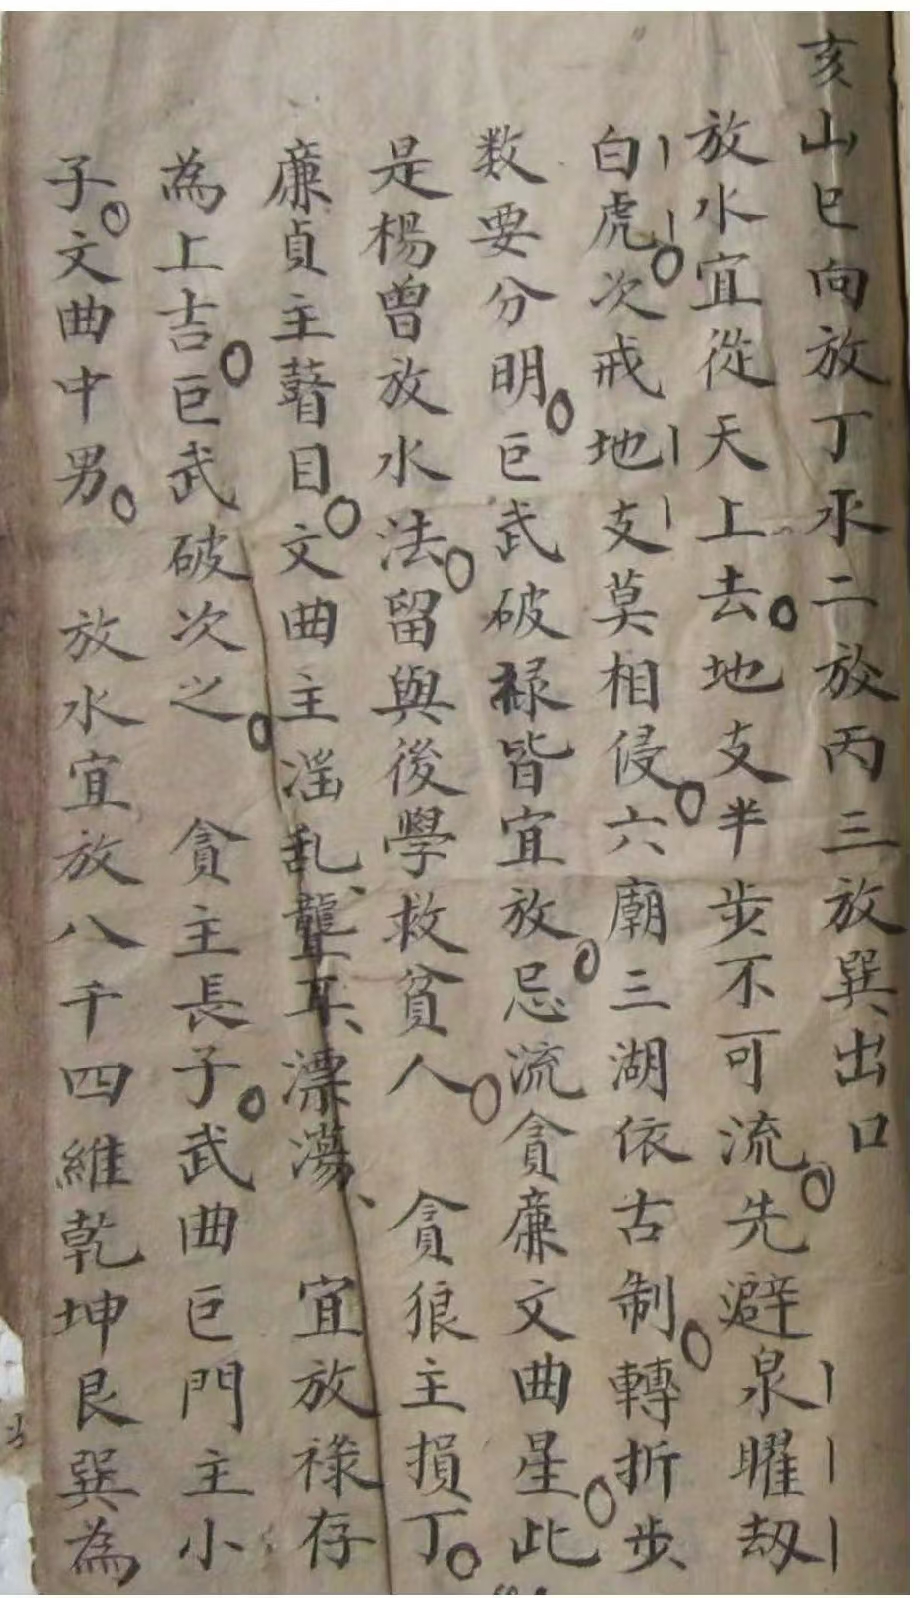 亥山巳向放丁水二放丙三放巽出口
放水宜從天上去地支半步不可流先避泉曜刼
白虎次戒地支莫相侵六廟三湖依古制轉折步
数要分明巨武破禄皆宜放忌流貪廉文曲星此
是楊曾放水法留與後學救貧人 貪狼主損丁
廉貞主瞽目文曲主滛乱聾耳、漂蕩、 宜放祿存
為上吉巨武破次之 貪主長子武曲巨門主小
子文曲中男 放水宜放八千四維乾坤艮巽為